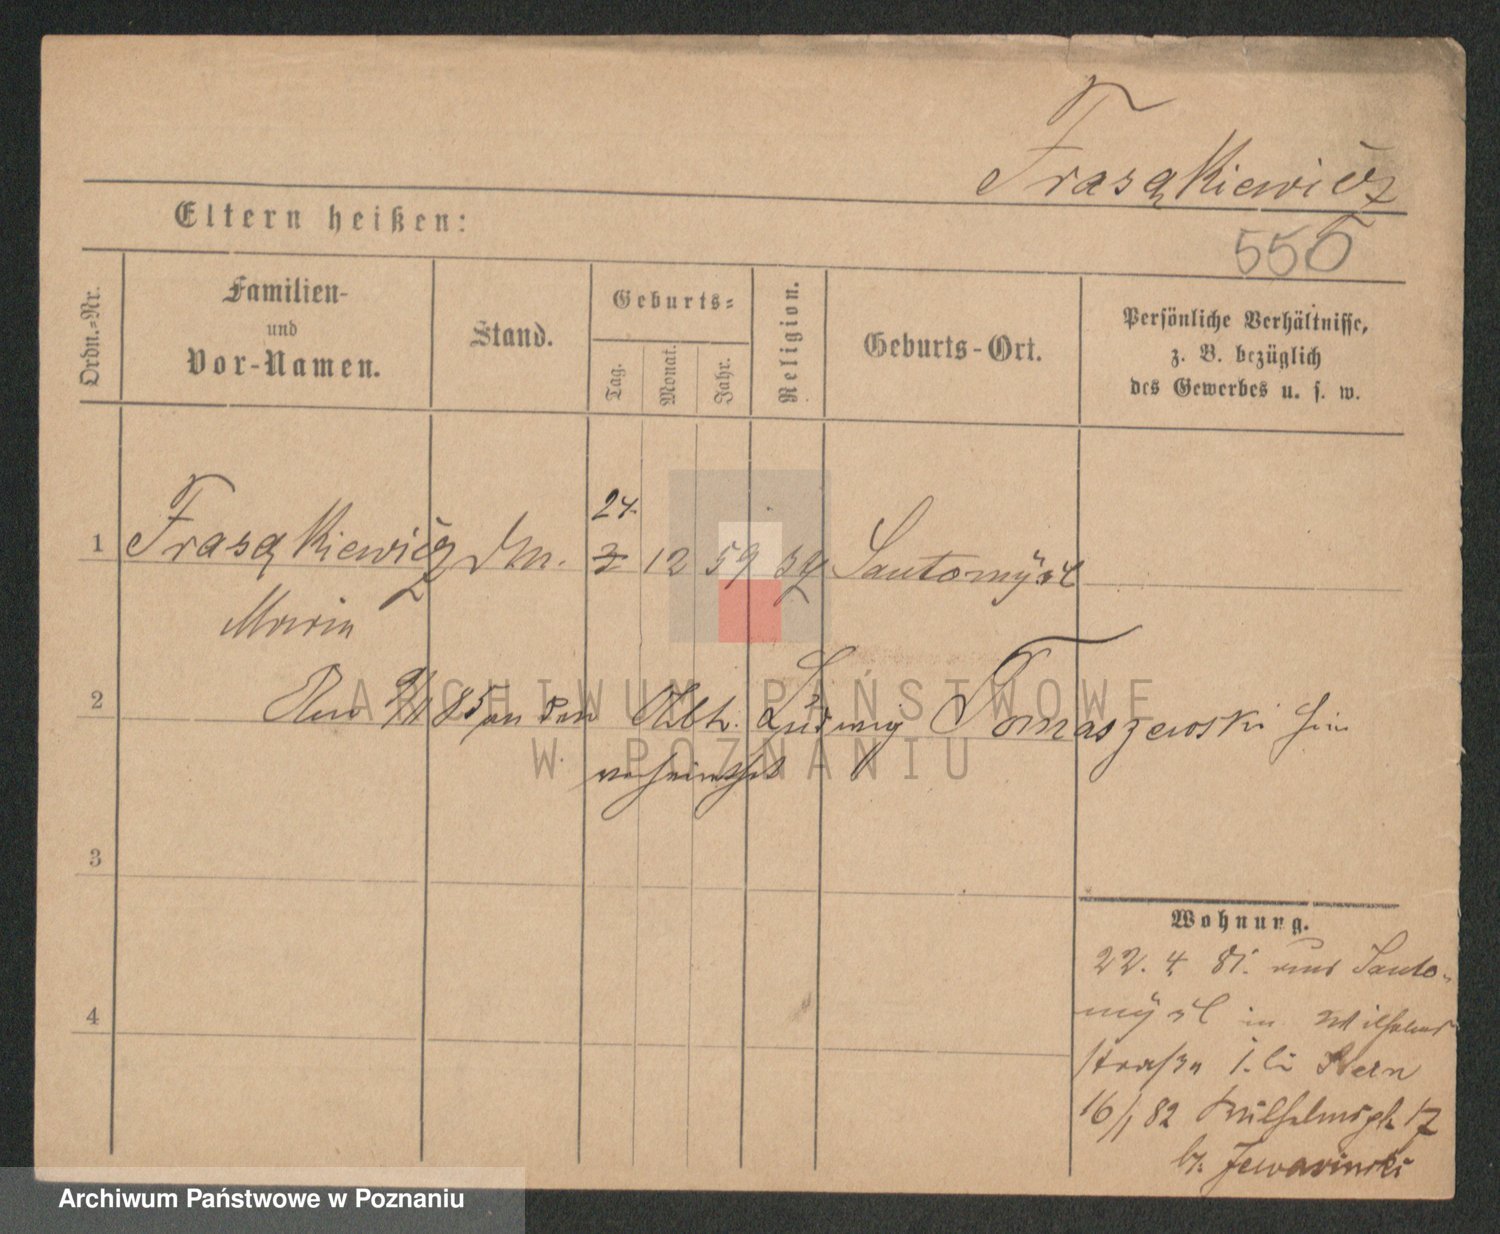 Frasąkiewicz
Eltern heißen:
555
Ordn.=Nr.
Familien-
und
Vor-Namen.
Stand.
Geburts=
Tag.
Monat.
Jahr.
Religion.
Geburts-Ort.
Persönliche Verhältnisse,
z. B. bezüglich
des Gewerbes u. s. w.
24.
1 Frasąkiewicz 12 59 Santomyśl
Maria
2 85 an den Ludwig Tomaszewski hier
verheirathet
3
Wohnung.
22. 4. 81. aus Santo-
4
myśl in Wilhelms
straße
16/1 82 Wilhelmspl. 17
ARCHIWUM PAŃSTWOWE
W POZNANIU
Archiwum Państwowe w Poznaniu